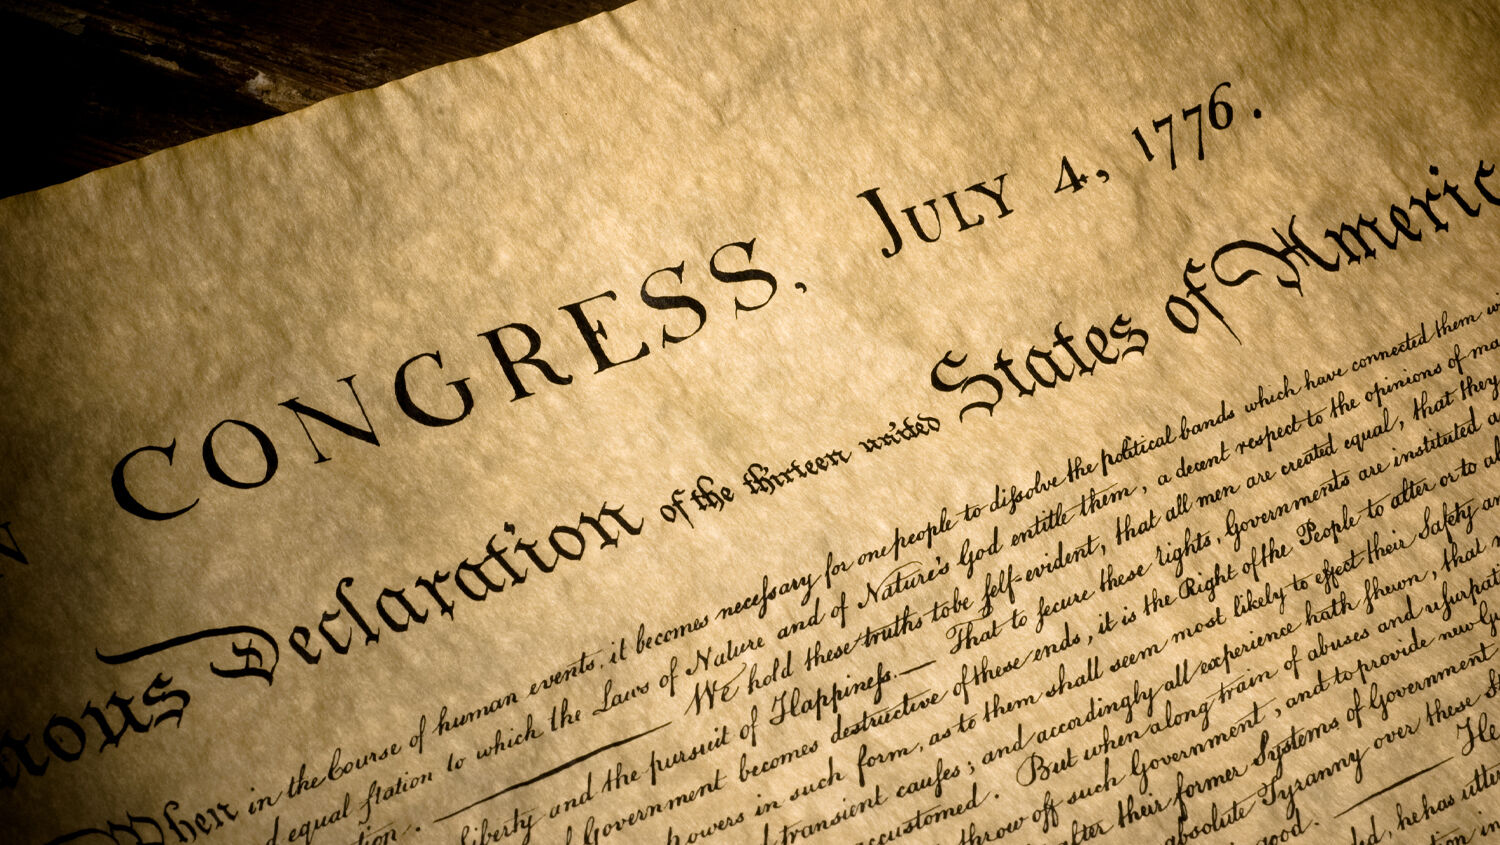 N CONGRESS, JULY 4, 1776.
Declaration of the thirteen united States of Americ
When in the Course of human events, it becomes necefsary for one people to difsolve the political bands which have connected them
equal ſtation to which the Laws of Nature and of Nature's God entitle them, a decent respect to the opinions of
We hold these truths to be ſelf-evident, that all men are created equal, that they
liberty and the pursuit of Happineſs.— That to ſecure these rights, Governments are instituted
Government becomes destructive of these ends, it is the Right of the People to alter or to
powers in such form, as to them shall seem most likely to effect their Safety
transient cauſes; and accordingly all experience hath ſhewn, that
accustomed. But when a long train of abuses and
throw off such Government, and to provide new
their former Systems of Government
absolute Tyranny over these
good. He
he has